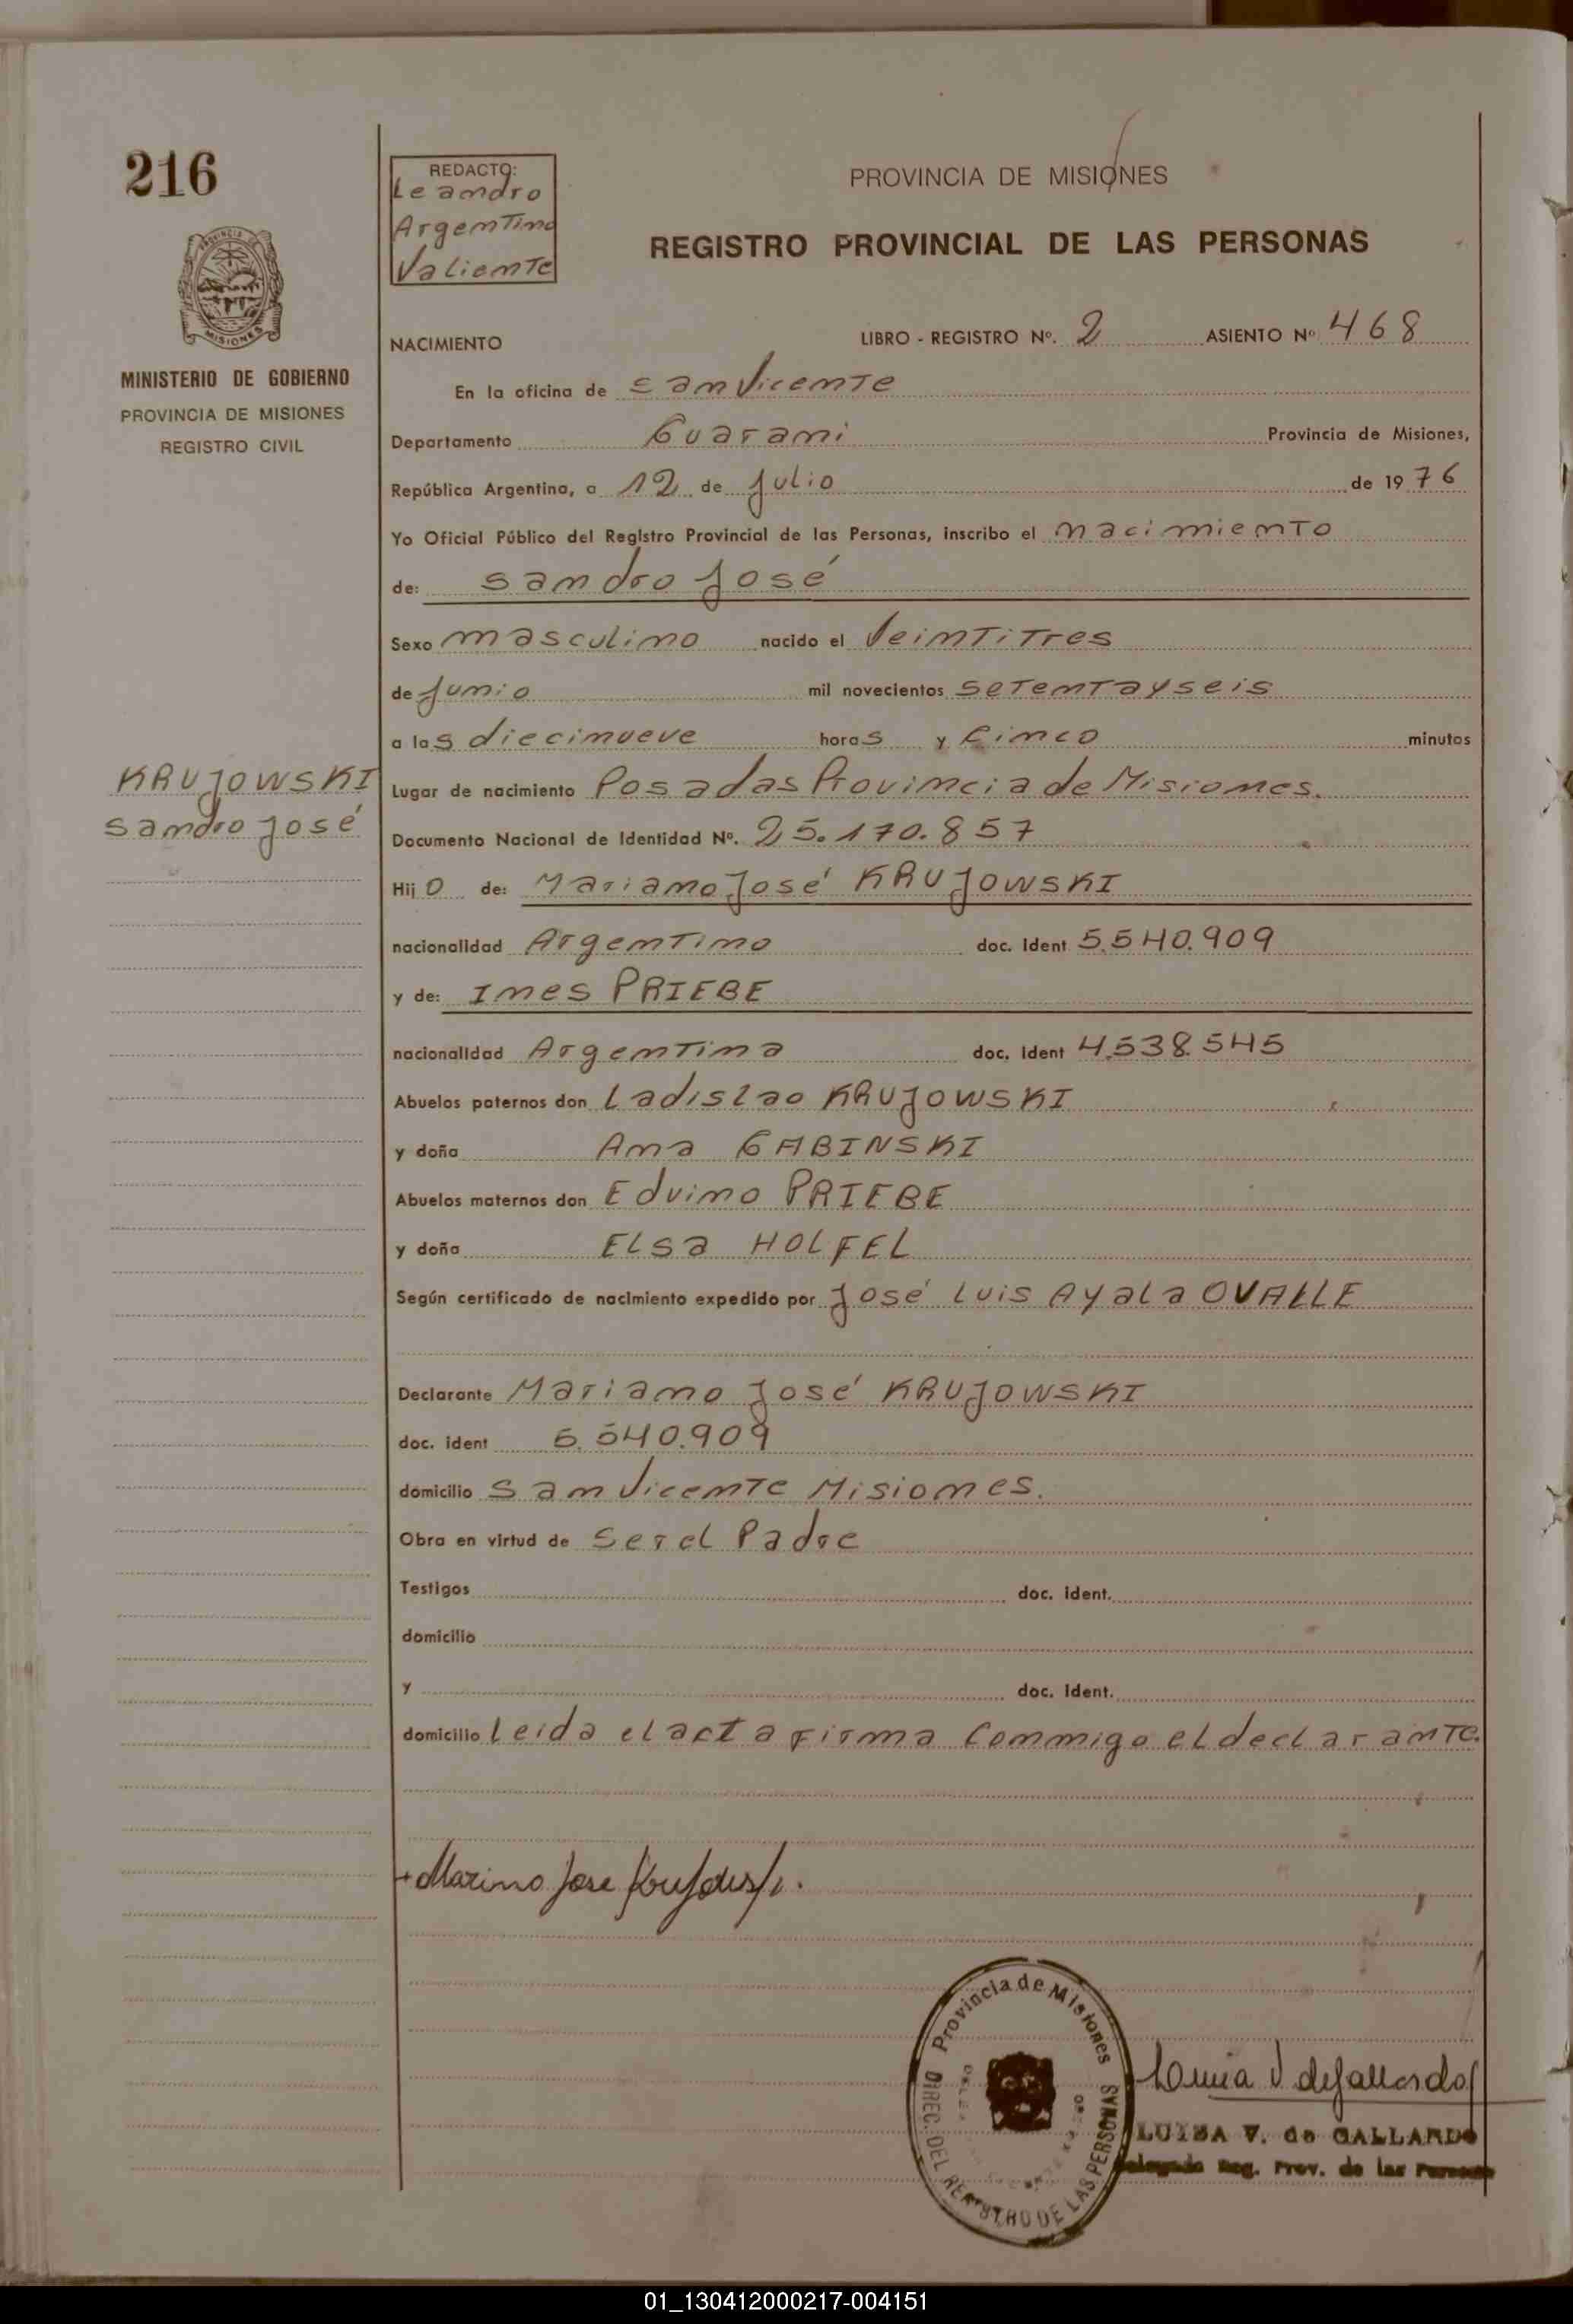 216
PROVINCIA DE MISIONES
MINISTERIO DE GOBIERNO
PROVINCIA DE MISIONES
REGISTRO CIVIL
KRUJOWSKI
Sandro José
REDACTO:
Leandro
Argentino
Valiente
PROVINCIA DE MISIONES
REGISTRO PROVINCIAL DE LAS PERSONAS
NACIMIENTO LIBRO - REGISTRO Nº. 2 ASIENTO Nº 468
En la oficina de San Vicente
Departamento Guarani Provincia de Misiones,
República Argentina, a 12 de Julio de 1976
Yo Oficial Público del Registro Provincial de las Personas, inscribo el nacimiento
de: Sandro José
Sexo masculino nacido el Veintitres
de Junio mil novecientos setentayseis
a las diecinueve horas y Cinco minutos
Lugar de nacimiento Posadas Provincia de Misiones.
Documento Nacional de Identidad Nº. 25.170.857
Hijo de: Mariano José KRUJOWSKI
nacionalidad Argentino doc. Ident 5.540.909
y de: Ines PRIEBE
nacionalidad Argentina doc. Ident 4.538.545
Abuelos paternos don Ladislao KRUJOWSKI
y doña Ana GABINSKI
Abuelos maternos don Edvino PRIEBE
y doña Elsa HOLFEL
Según certificado de nacimiento expedido por José Luis Ayala OVALLE
Declarante Mariano José KRUJOWSKI
doc. ident 5.540.909
domicilio San Vicente Misiones.
Obra en virtud de Ser el Padre
Testigos doc. ident.
domicilio
y doc. Ident.
domicilio Leida el acta firma Conmigo el declarante.
Marino Jose Krujowski.
Provincia de Misiones
DIREC. DEL REGISTRO DE LAS PERSONAS
Luisa V de Gallardo
LUISA V. de GALLARDO
Delegada Reg. Prov. de las Personas
01_130412000217-004151